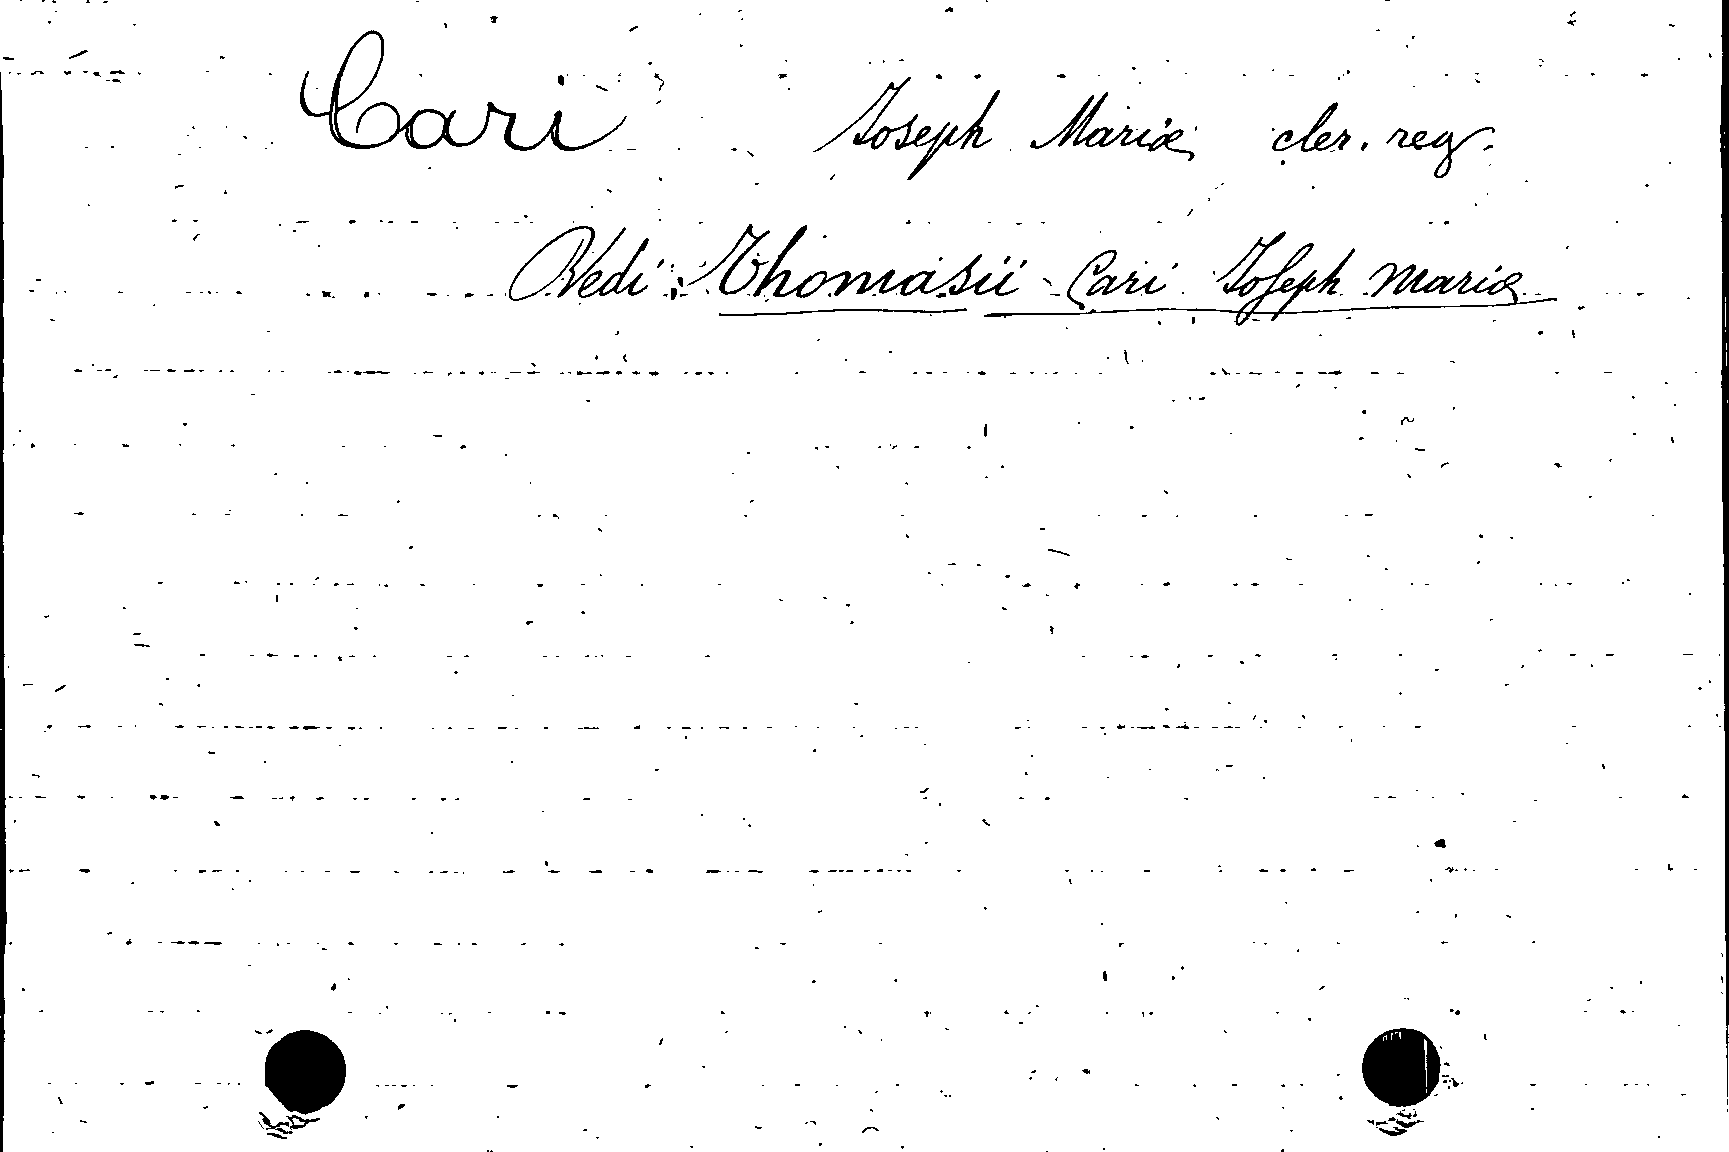 Cari Joseph Mariæ cler. reg.
Vedi: Thomasii Cari Joseph Mariæ